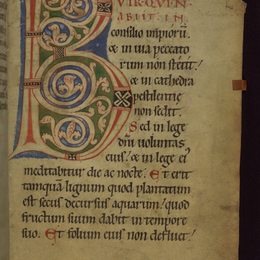 B
VIR QVI N
ABIIT. IN
consilio impiorũ.
& in uia peccato
rum non stetit.
& in cathedra
pestilentie
non sedit.
Sed in lege
dñi uoluntas
eius. & in lege ei
meditabitur die ac nocte. Et erit
tanquã lignum quod plantatum
est secus decursus aquarum. quod
fructum suum dabit in tempore
suo. Et folium eius non defluet.